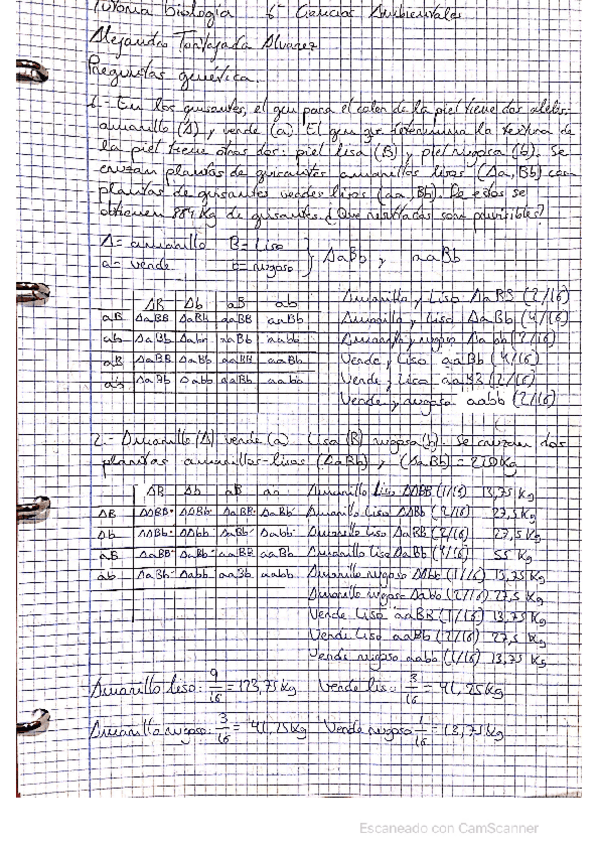 Tutoria biología 6º Ciencias Ambientales
Alejandro Tortajada Alvarez
Preguntas genética.
1.- En los guisantes, el gen para el color de la piel tiene dos alelos:
amarillo (A) y verde (a). El gen que determina la textura de
la piel tiene otros dos: piel lisa (B) y piel rugosa (b). Se
cruzan plantas de guisantes amarillos lisos (Aa, Bb) con
plantas de guisantes verdes lisos (aa, Bb). De estos se
obtienen 884 Kg de guisantes. ¿Que resultados son previsibles?
A = amarillo B = liso } AaBb y aaBb
a = verde b = rugoso
AB Ab aB ab
aB AaBB AaBb aaBB aaBb
ab AaBb Aabb aaBb aabb
aB AaBB AaBb aaBB aaBb
ab AaBb Aabb aaBb aabb
Amarillo y Liso AaBB (2/16)
Amarillo y Liso AaBb (4/16)
Amarillo y rugoso Aabb (2/16)
Verde y Liso aaBb (4/16)
Verde y Liso aaBB (2/16)
Verde y rugoso aabb (2/16)
2.- Amarillo (A) verde (a) Lisa (B) rugosa (b). Se cruzan dos
plantas amarillos-lisos (AaBb) y (AaBb) = 220 Kg
AB Ab aB
AB AABB AABb AaBB AaBb
Ab AABb AAbb AaBb Aabb
aB AaBB AaBb aaBB aaBb
ab AaBb Aabb aaBb aabb
Amarillo Liso AABB (1/16) 13,75 Kg
Amarillo Liso AABb (2/16) 27,5 Kg
Amarillo Liso AaBB (2/16) 27,5 Kg
Amarillo Liso AaBb (4/16) 55 Kg
Amarillo rugoso AAbb (1/16) 13,75 Kg
Amarillo rugoso Aabb (2/16) 27,5 Kg
Verde Liso aaBB (1/16) 13,75 Kg
Verde Liso aaBb (2/16) 27,5 Kg
Verde rugoso aabb (1/16) 13,75 Kg
Amarillo liso: 9/16 = 123,75 Kg Verde liso: 3/16 = 41,25 Kg
Amarillo rugoso: 3/16 = 41,25 Kg Verde rugoso 1/16 = 13,75 Kg
Escaneado con CamScanner